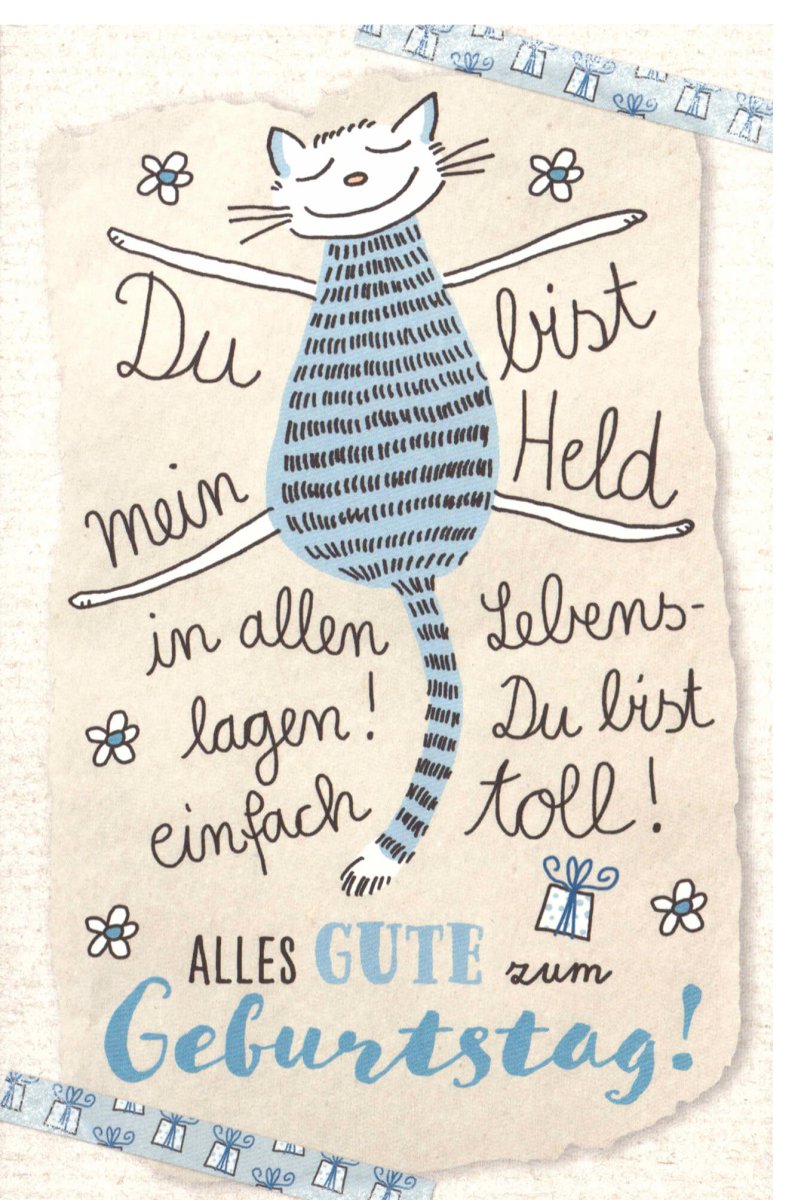 Du bist
mein Held
in allen Lebens-
lagen! Du bist
einfach toll!
ALLES GUTE zum
Geburtstag!